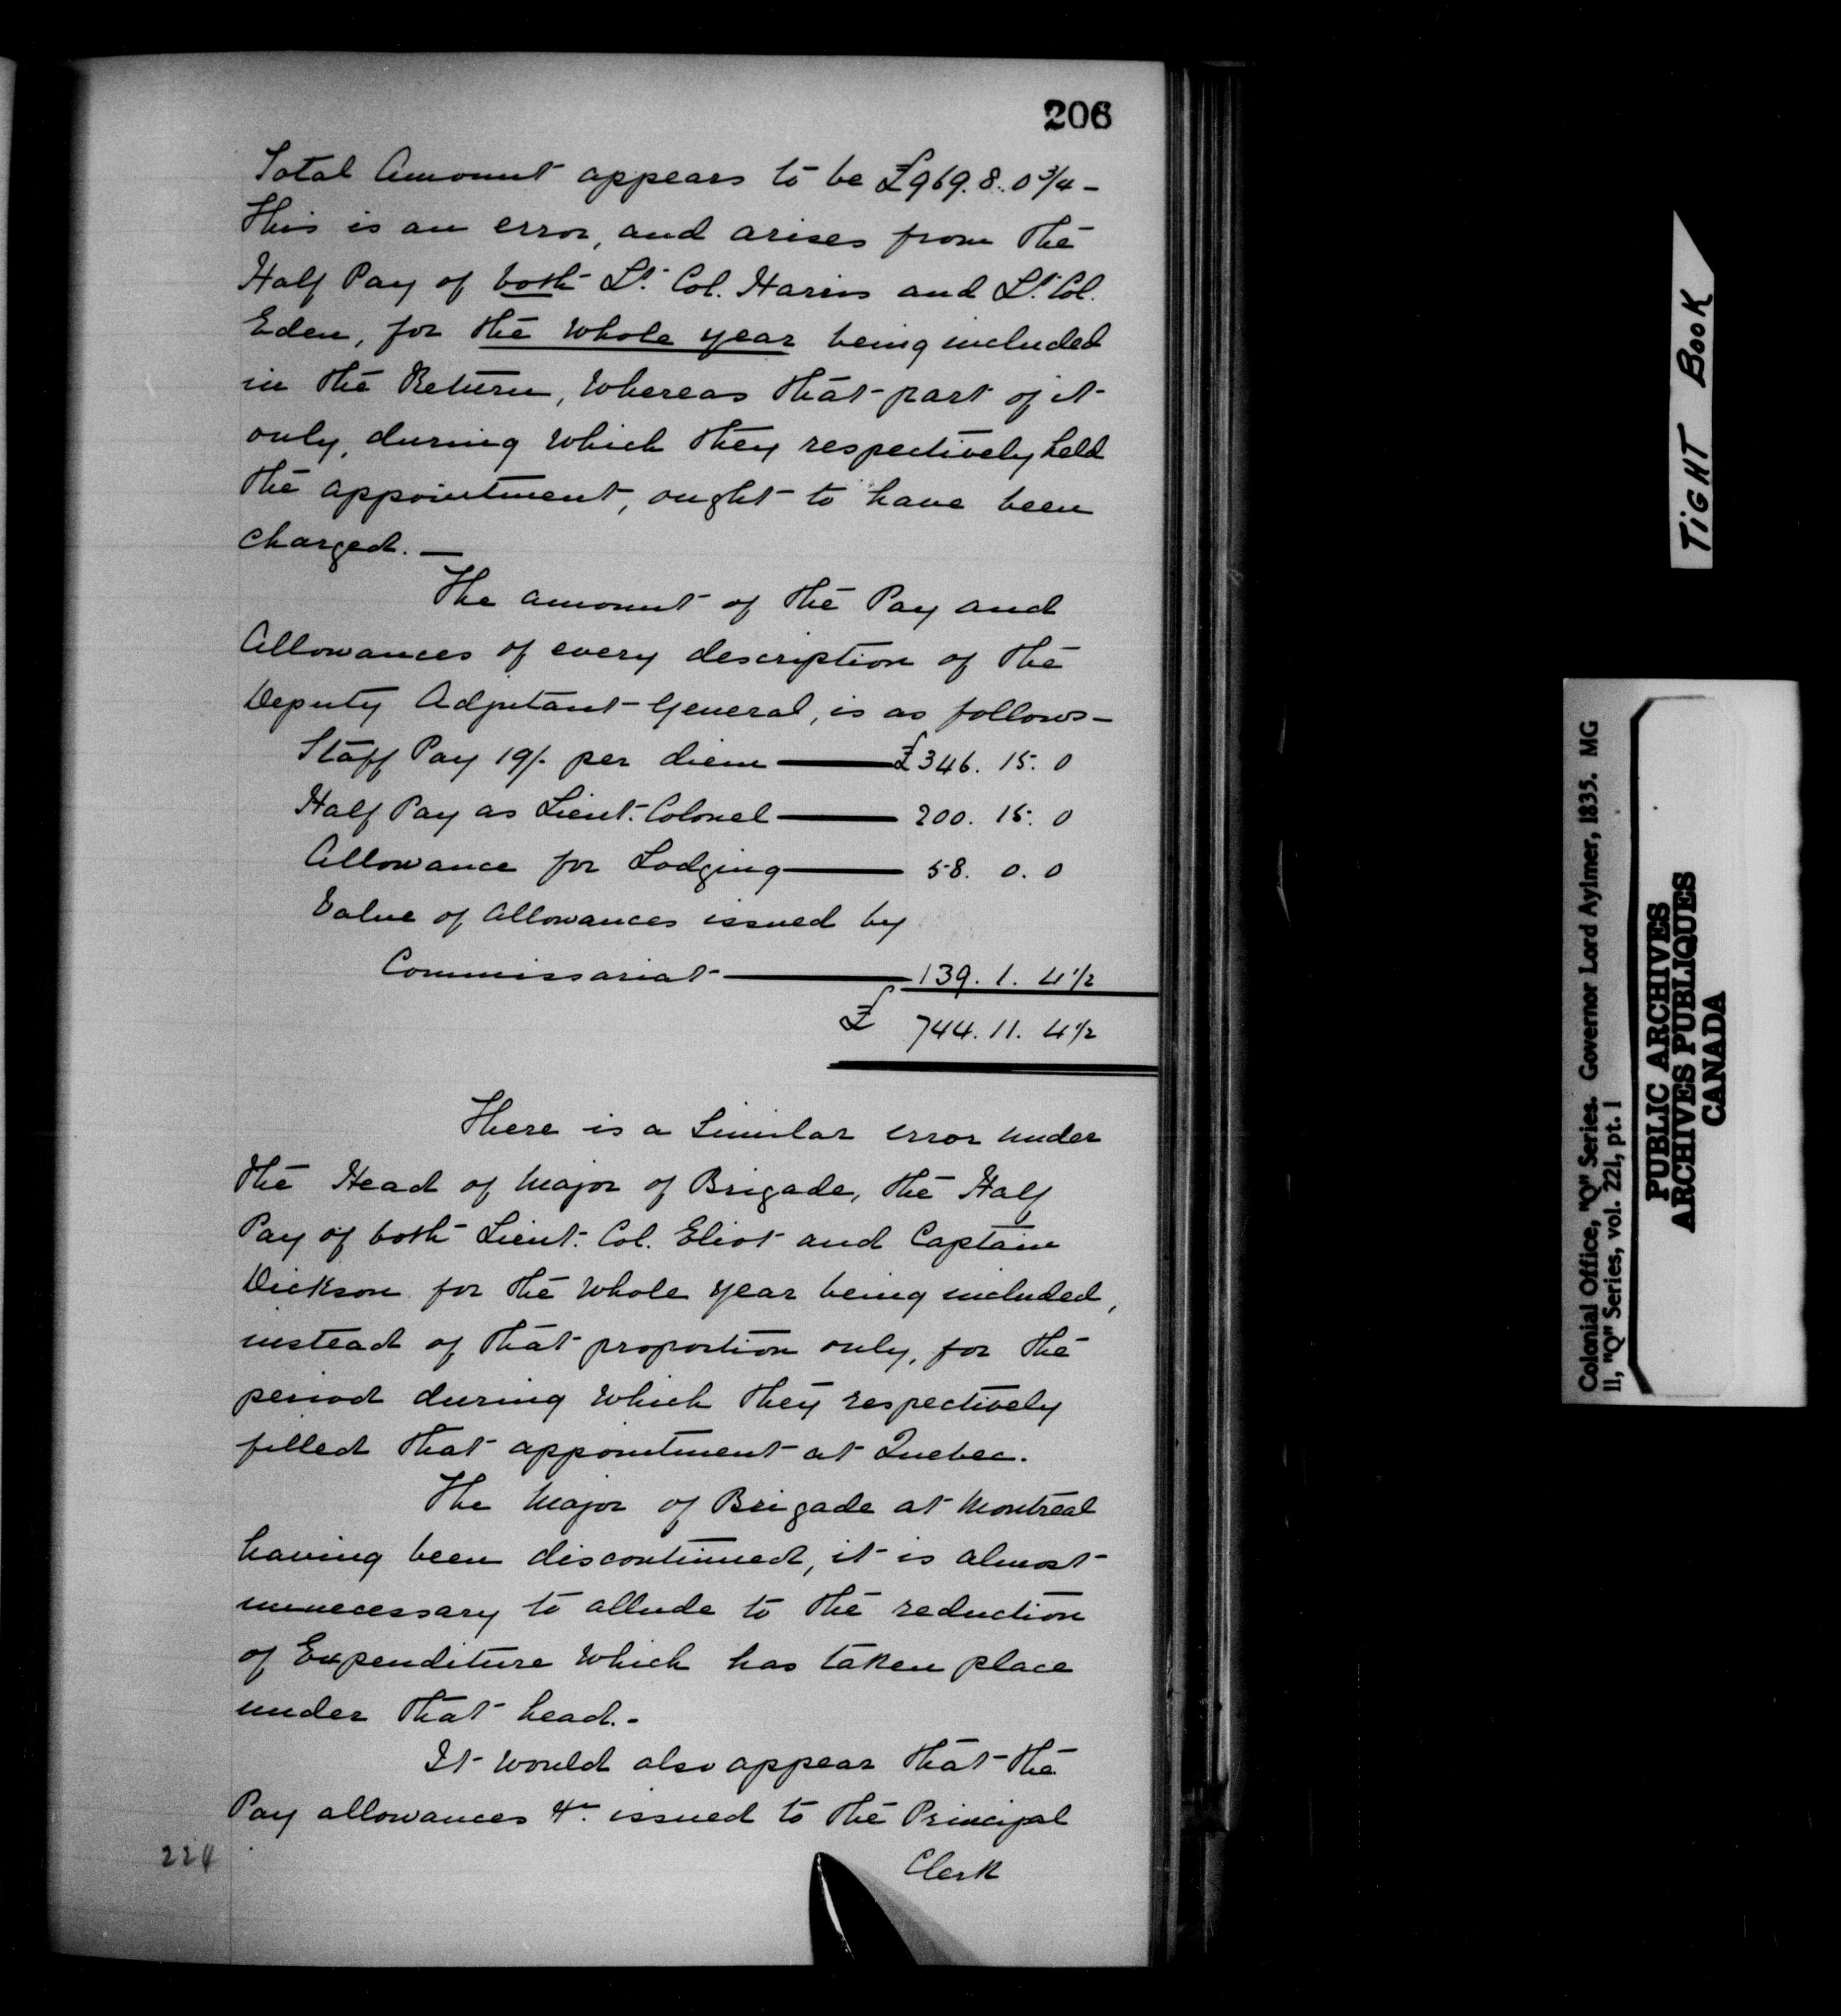 206
Total Amount appears to be £969.8.0 3/4 -
This is an error, and arises from the
Half Pay of both Lt. Col. Harris and Lt. Col.
Eden, for the whole year being included
in the Return, whereas that part of it
only, during which they respectively held
the appointment, ought to have been
charged. —
The amount of the Pay and
Allowances of every description of the
Deputy Adjutant General, is as follows -
Staff Pay 19/- per diem — £346. 15. 0
Half Pay as Lieut. Colonel — 200. 15. 0
Allowance for Lodging — 58. 0. 0
Value of Allowances issued by
Commissariat — 139. 1. 4 1/2
£ 744. 11. 4 1/2
There is a Similar error under
the Head of Major of Brigade, the Half
Pay of both Lieut. Col. Eliot and Captain
Dickson for the whole year being included,
instead of that proportion only, for the
period during which they respectively
filled that appointment at Quebec.
The Major of Brigade at Montreal
having been discontinued, it is almost
unnecessary to allude to the reduction
of Expenditure which has taken place
under that head. -
It would also appear that the
Pay allowances &c. issued to the Principal
Clerk
224
TIGHT BOOK
Colonial Office, "Q" Series. Governor Lord Aylmer, 1835. MG
11, "Q" Series, vol. 221, pt. 1
PUBLIC ARCHIVES
ARCHIVES PUBLIQUES
CANADA